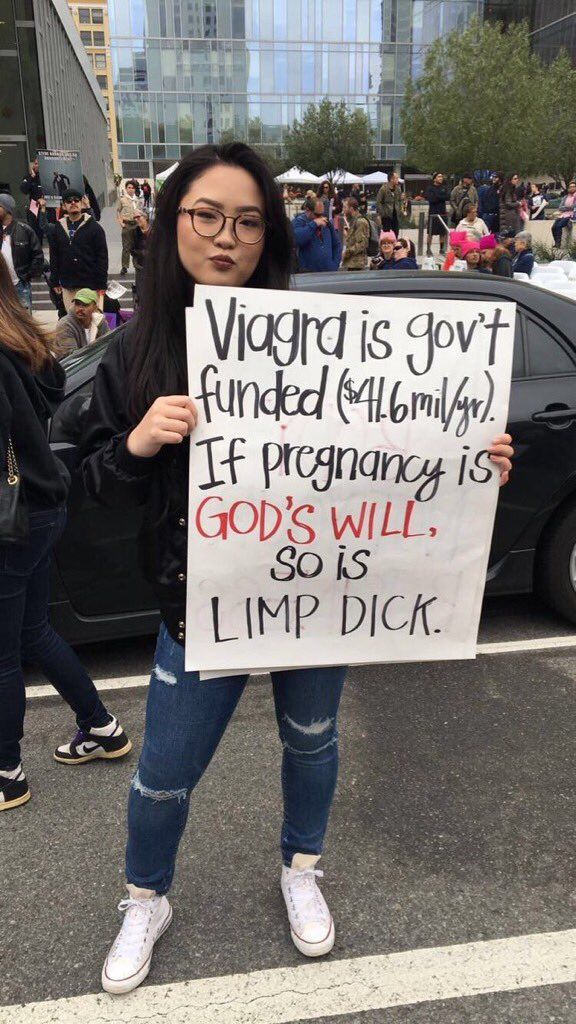 Viagra is gov't
funded ($41.6mil/yr).
If pregnancy is
GOD'S WILL,
so is
LIMP DICK.